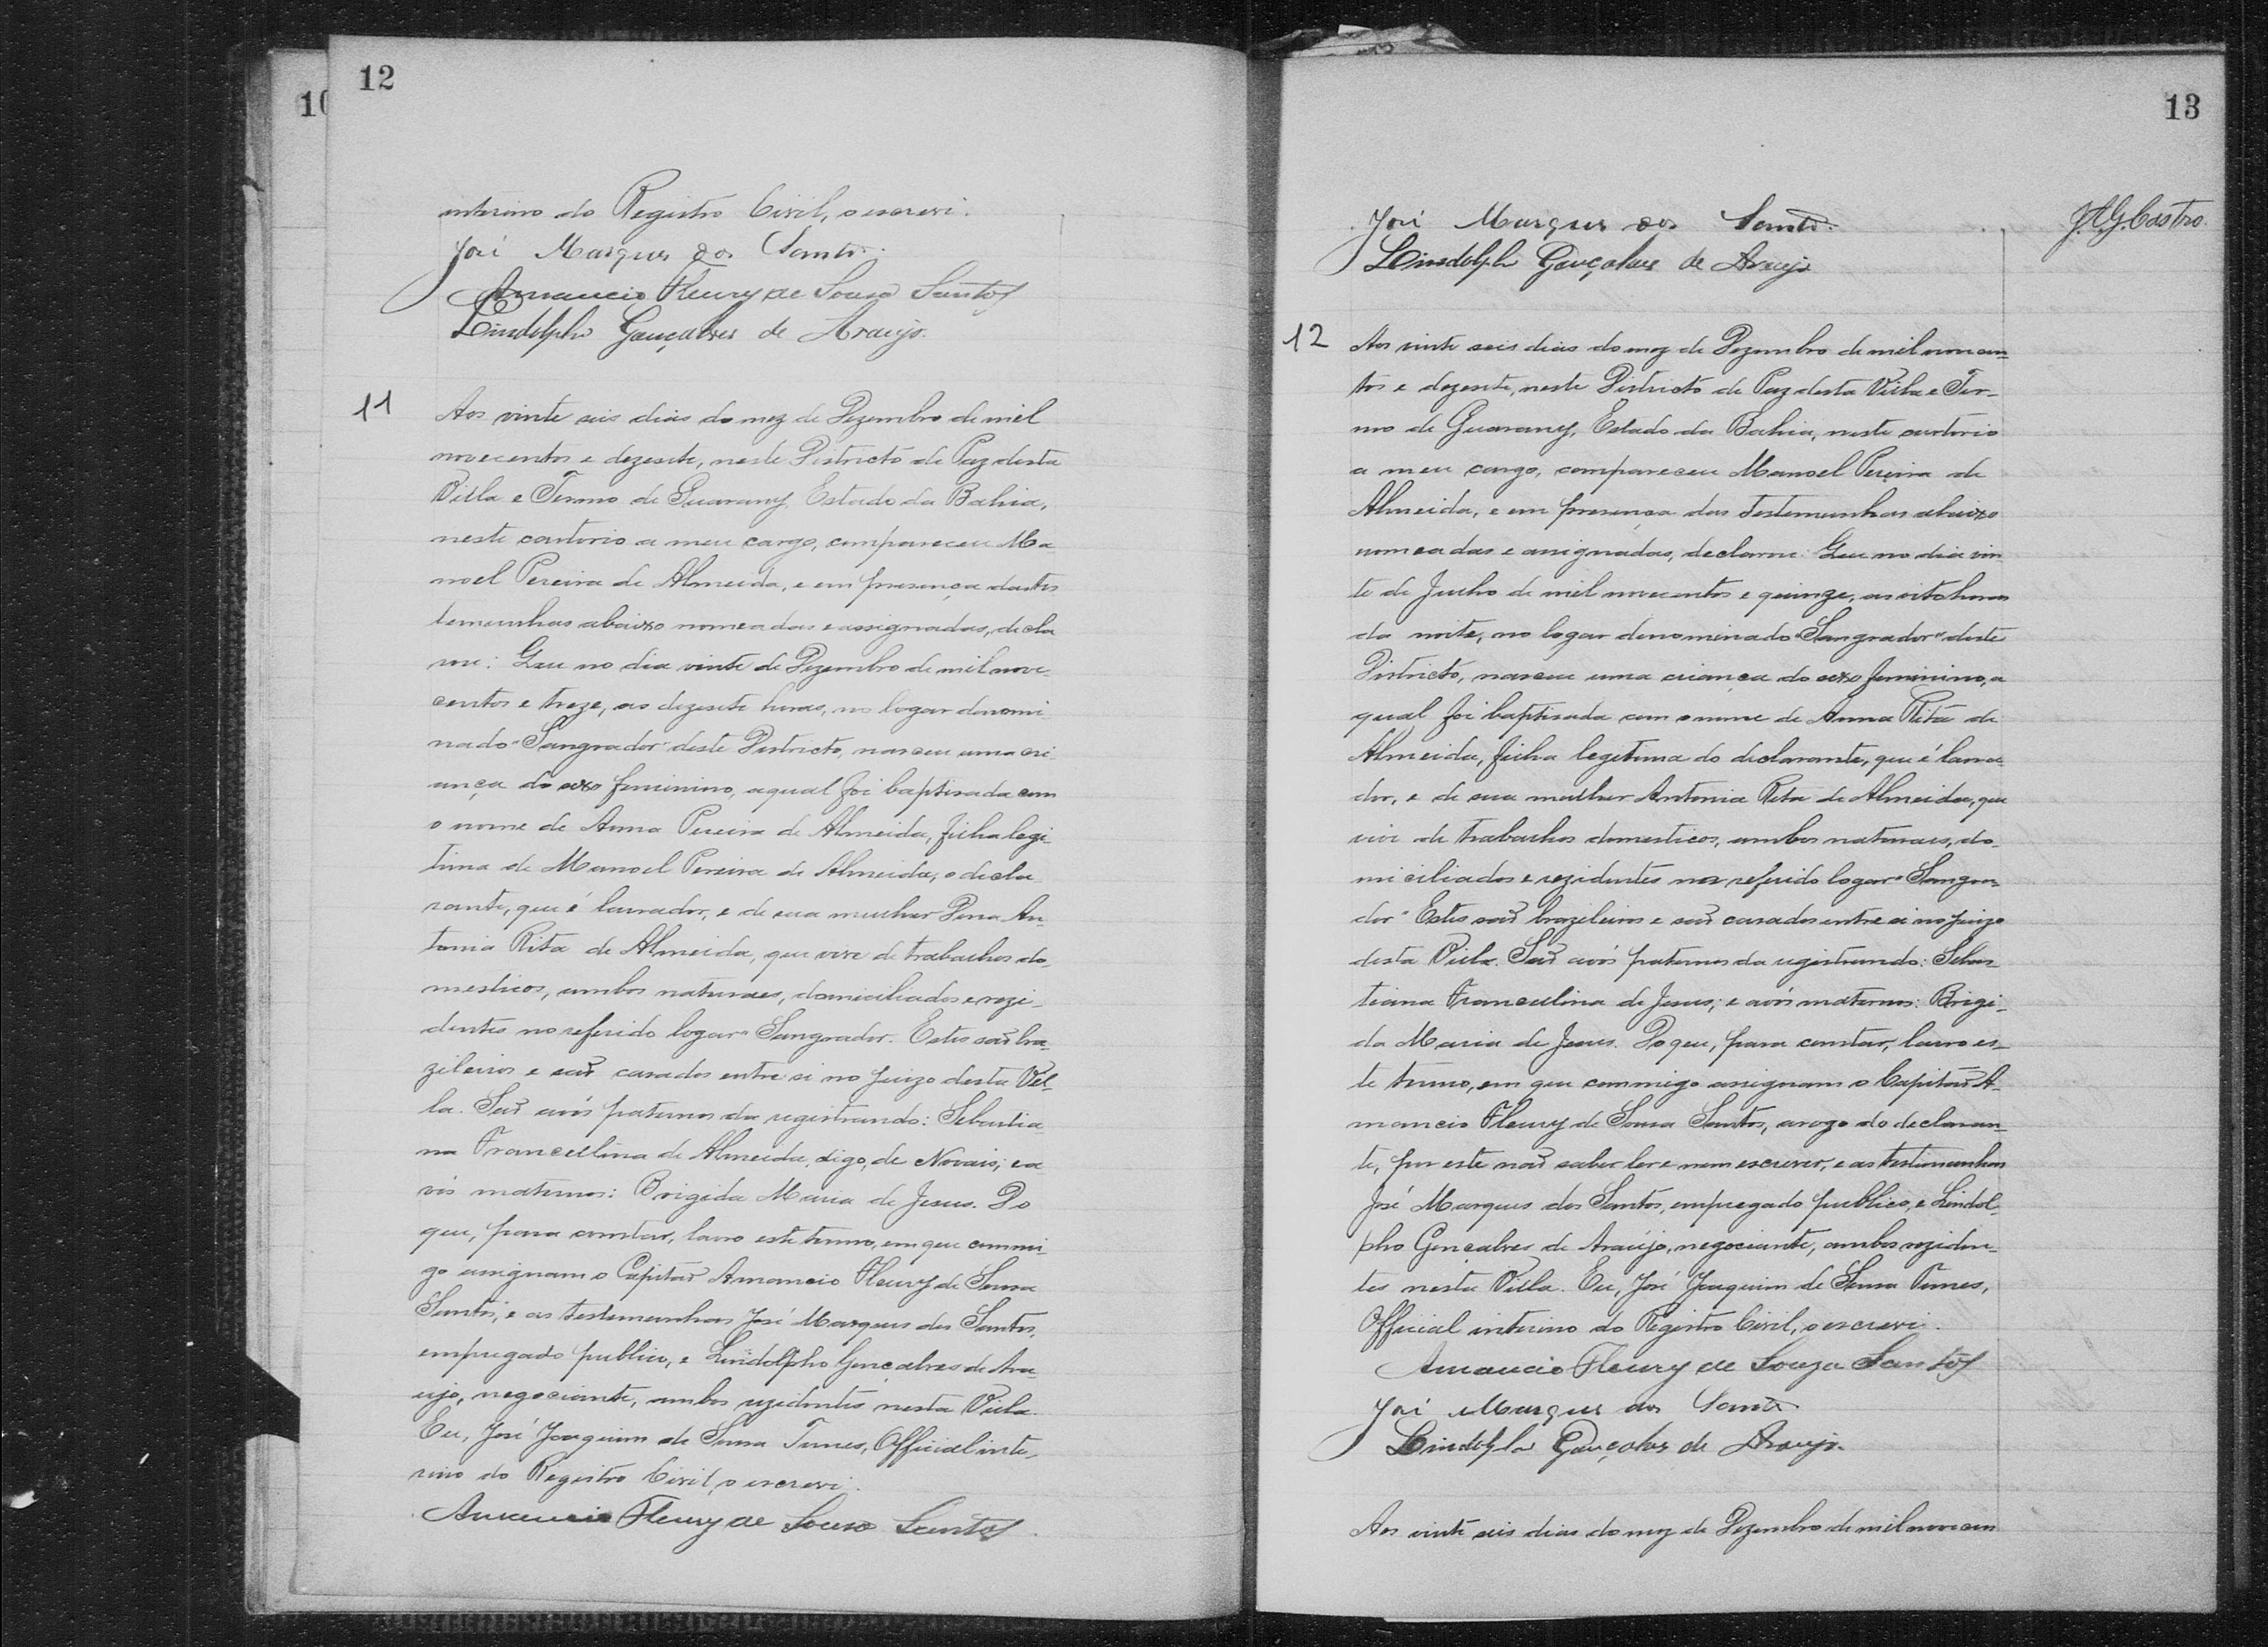 10
12
interino do Registro Civil, o escrevi.
José Marques dos Santos.
Amancio Fleury de Souza Santos
Lindolpho Gonçalves de Araujo.
11
Aos vinte seis dias do mez de Dezembro de mil
novecentos e dezesete, neste Districto de Paz desta
Villa e Termo de Guarany, Estado da Bahia,
neste cartorio a meu cargo, compareceu Ma
noel Pereira de Almeida, e em presença das tes
temunhas abaixo nomeadas e assignadas, decla
rou: Que no dia vinte de Dezembro de mil nove-
centos e treze, as dezesete horas, no logar denomi
nado "Sangrador" deste Districto, nasceu uma cri
ança do sexo feminino, a qual foi baptisada com
o nome de Anna Pereira de Almeida, filha legi-
tima de Manoel Pereira de Almeida, o decla
rante, que é lavrador, e de sua mulher Dona An-
tonia Rita de Almeida, que vive de trabalhos do-
mesticos, ambos naturaes, domiciliados e rezi-
dentes no referido logar "Sangrador. Estes são bra-
zileiros e são casados entre si no juizo desta Vil-
la. São avós paternos da registrando: Sebastia-
na Francellina de Almeida, digo, de Novais; e a
vós maternos: Brigida Maria de Jesus. Do
que, para constar, lavro este termo, em que commi-
go assignam o Capitão Amancio Fleury de Sousa
Santos, e as testemunhas José Marques dos Santos,
empregado publico, e Lindolpho Gonçalves de Ara-
ujo, negociante, ambos rezidentes nesta Villa.
Eu, José Joaquim de Sousa Tunes, Official inte-
rino do Registro Civil, o escrevi.
Amancio Fleury de Souza Santos
13
José Marques dos Santos.
Lindolpho Gonçalves de Araujo
J.A.G.Castro.
12
Aos vinte seis dias do mez de Dezembro de mil novecen-
tos e dezesete, neste Districto de Paz desta Villa e Ter-
mo de Guarany, Estado da Bahia, neste cartorio
a meu cargo, compareceu Manoel Pereira de
Almeida, e em presença das testemunhas abaixo
nomeadas e assignadas, declarou: Que no dia vin
te de Julho de mil novecentos e quinze, as oito horas
da noite, no logar denominado "Sangrador" deste
Districto, nasceu uma criança do sexo feminino, a
qual foi baptisada com o nome de Anna Rita de
Almeida, filha legitima do declarante, que é lavra
dor, e de sua mulher Antonia Rita de Almeida, que
vive de trabalhos domesticos, ambos naturaes, do-
miciliados e rezidentes no referido logar "Sangra-
dor" Estes são brazileiros e são casados entre si no juizo
desta Villa. São avós paternos da registrando: Sebas-
tiana Francellina de Jesus; e avós maternos: Brigi-
da Maria de Jesus. Do que, para constar, lavro es-
te termo, em que commigo assignam o Capitão A-
mancio Fleury de Sousa Santos, a rogo do declaran-
te, por este não saber ler e nem escrever, e as testemunhas
José Marques dos Santos, empregado publico, e Lindol-
pho Gonçalves de Araújo, negociante, ambos reziden-
tes nesta Villa. Eu, José Joaquim de Sousa Tunes,
Official interino do Registro Civil, o escrevi.
Amancio Fleury de Souza Santos
José Marques dos Santos
Lindolpho Gonçalves de Araujo.
Aos vinte seis dias do mez de Dezembro de mil novecen